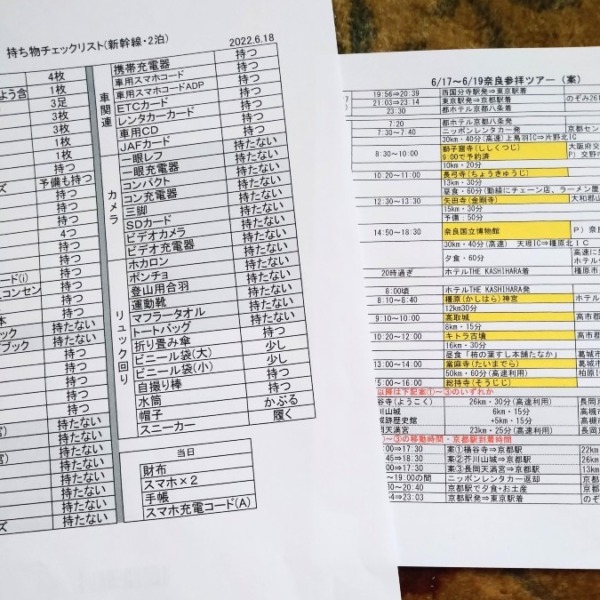 持ち物チェックリスト(新幹線・2泊) 2022.6.18
4枚
よう含 1枚
3足
3枚
1枚
1枚
ズ 持たない
予備も持つ
持つ
持つ
持つ
4つ
持つ
持つ
ード(i) 持つ
コンセン 持つ
持つ
本 持つ
ック 持たない
ブック 持たない
持つ
持たない
持たない
持たない
ズ 持たない
携帯充電器 持つ
車関連
車用スマホコード 持つ
車用スマホコードADP 持つ
ETCカード 持つ
レンタカーカード 持つ
車用CD 持つ
JAFカード 持つ
カメラ
一眼レフ 持たない
一眼充電器 持たない
コンパクト 持たない
コン充電器 持たない
三脚 持たない
SDカード 持たない
ビデオカメラ 持たない
ビデオ充電器 持たない
リュック回り
ホカロン 持たない
ポンチョ 持たない
登山用合羽 持たない
運動靴 持たない
マフラータオル 持たない
トートバッグ 持たない
折り畳み傘 持つ
ビニール袋(大) 少し
ビニール袋(小) 少し
自撮り棒 持つ
水筒 持つ
帽子 かぶる
スニーカー 履く
当日
財布
スマホ×2
手帳
スマホ充電コード(A)
6/17~6/19奈良参拝ツアー(案)
19:56⇒20:39 西国分寺駅発⇒東京駅着
21:03⇒23:14 東京駅発⇒京都駅着 のぞみ26
23:30 都ホテル京都八条着
7:20 都ホテル京都八条発
7:30~7:40 ニッポンレンタカー発 京都セン
30km・40分(高速)上鳥羽IC⇒片野北IC
8:30~10:00 獅子窟寺(ししくつじ) 大阪府交
9:00で予約済 P)交野
10km・20分
10:20~11:00 長弓寺(ちょうきゅうじ)
13km・30分
昼食・60分(動線にチェーン店、ラーメン屋
12:30~13:30 矢田寺(金剛寺) 大和郡山
15km・30分
予備・50分
14:50~18:30 奈良国立博物館 P)奈良
30km・40分(高速) 天理IC⇒橿原北IC
夕食・60分 高速に
ホテル
20時過ぎ ホテルTHE KASHIHARA着 橿原
8:00頃 ホテルTHE KASHIHARA発
8:10~8:40 橿原(かしはら)神宮 ホテル
12km30分
9:10~10:00 高取城 高市郡
8km・15分
10:20~12:00 キトラ古墳 高市郡
16km・30分
昼食「柿の葉すし本舗たなか」 葛城市
13:00~14:00 當麻寺(たいまでら) 葛城市
50km・60分(高速利用) 柏原I
15:00~16:00 総持寺(そうじじ)
以降は下記案①~③のいずれか
谷寺(ようこく) 26km・30分(高速利用) 長岡京
川山城 6km・15分 高槻市
跡歴史館 +5km・15分 高槻市
天満宮 23km・25分(高速利用) 長岡京
~③の移動時間・京都駅到着時間
00⇒17:30 案①楊谷寺⇒京都駅 22km
45⇒18:30 案②芥川山城⇒京都駅 26km
00⇒17:30 案③長岡天満宮⇒京都駅 13km
~19:00の間 ニッポンレンタカー返却
~20:40 京都駅で夕食・お土産
4⇒23:03 京都駅発⇒東京駅着 のぞ